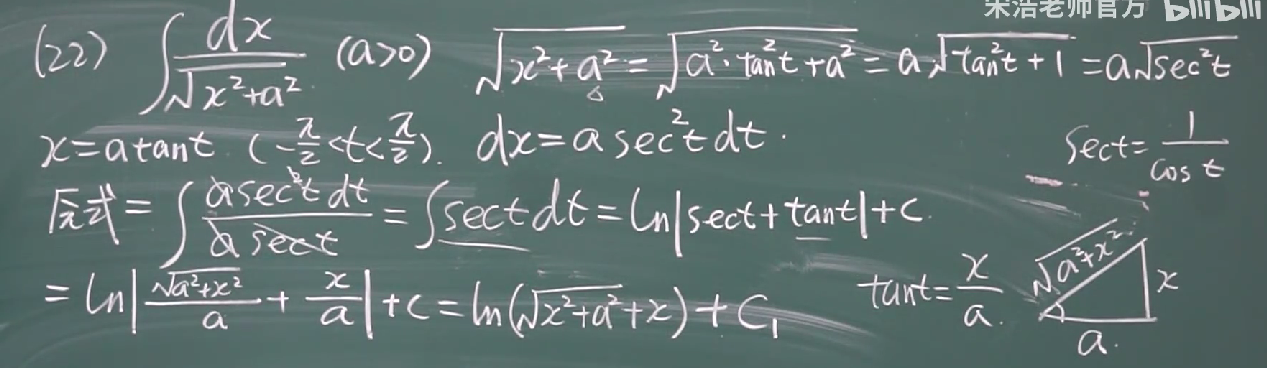 宋浩老师官方 bilibili
(22) ∫ dx/√(x²+a²) (a>0) √(x²+a²) = √(a²·tan²t+a²) = a√(tan²t+1) = a√(sec²t)
x=a tant (-π/2<t<π/2). dx=a sec²t dt. sect=1/cos t
原式 = ∫ a sec²t dt/(a sect) = ∫sect dt = ln|sect+tant|+C.
= ln|√(a²+x²)/a + x/a| +C = ln(√(x²+a²)+x)+C₁ tant=x/a. √(a²+x²) x
a.